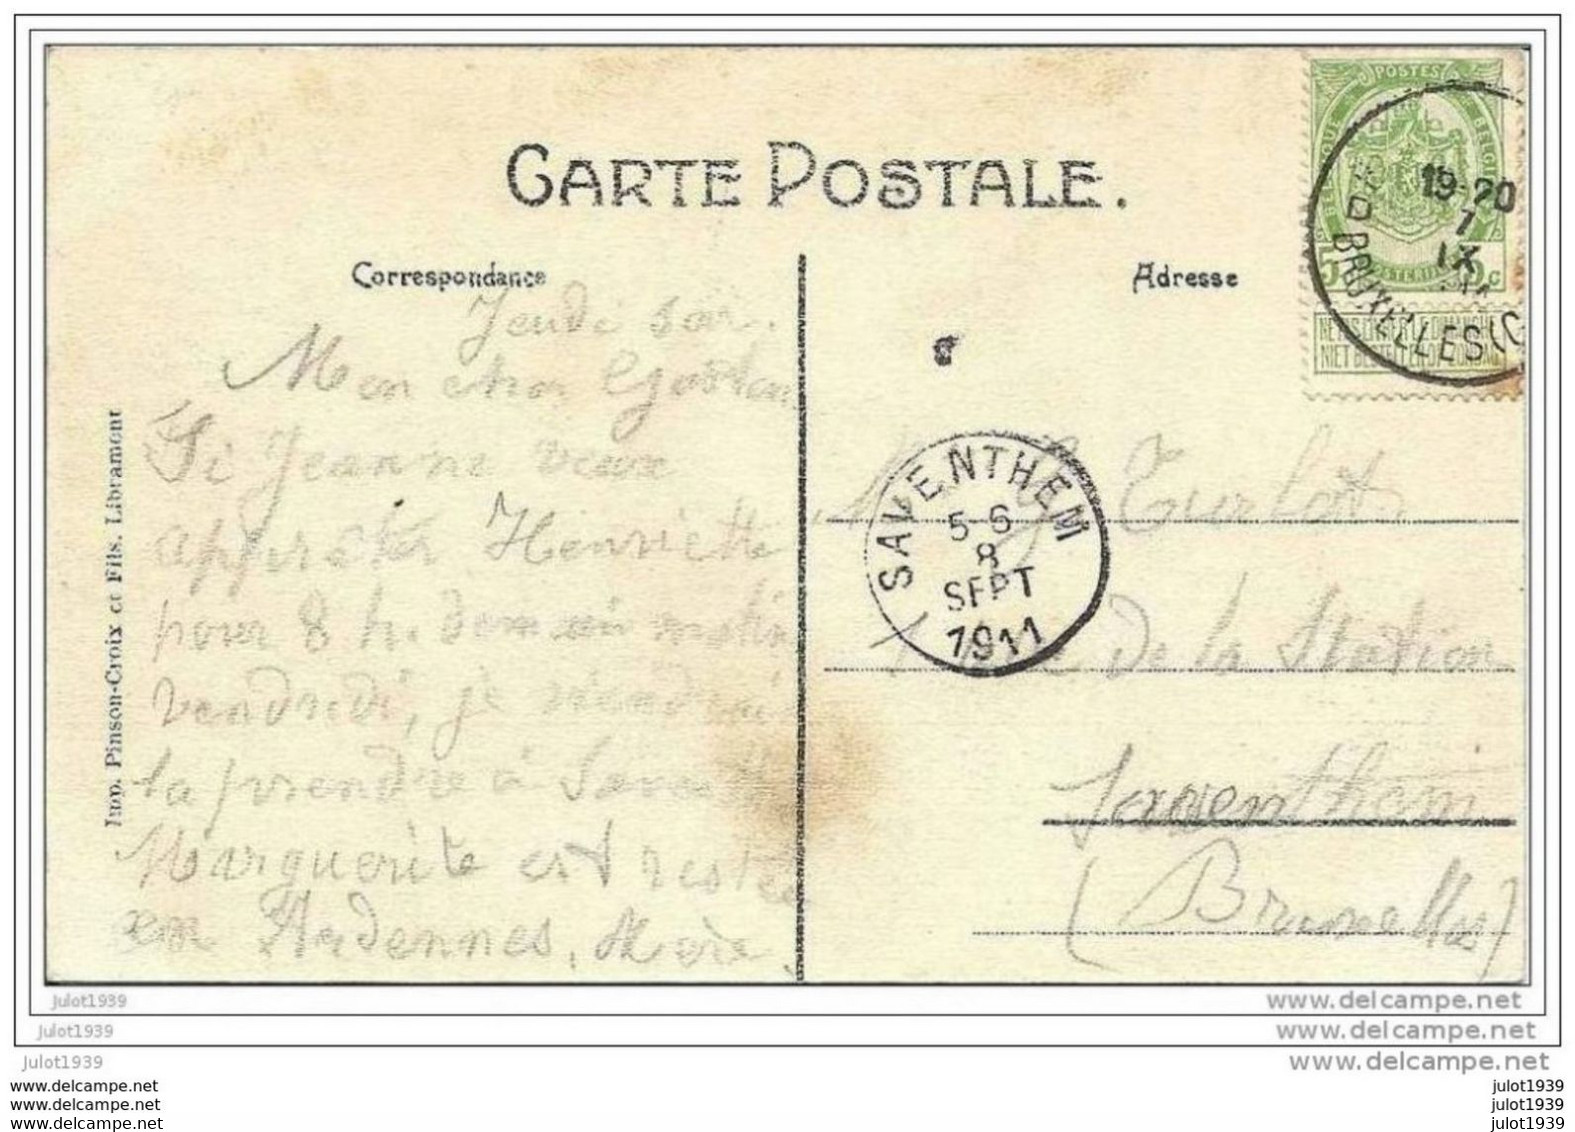 CARTE POSTALE.
Correspondance
Adresse
Jeudi soir.
Mon cher Gaston
Si Jeanne veux
appreter Henriette
pour 8 h. demain matin
vendredi, je viendrai
la prendre à
Marguerite est restée
en Ardennes,
Imp. Pinson-Croix et Fils. Libramont
POSTES
BELGIQUE
5
5c
NE PAS LIVRER LE DIMANCHE
NIET BESTELLEN OP ZONDAG
19-20
7
IX
BRUXELLES
SAVENTHEM
5-6
8
SEPT
1911
G Turlot
de la Station
Saventhem
(Bruxelles)
Julot1939
www.delcampe.net
Julot1939
www.delcampe.net
Julot1939
www.delcampe.net
www.delcampe.net
julot1939
www.delcampe.net
julot1939
www.delcampe.net
julot1939